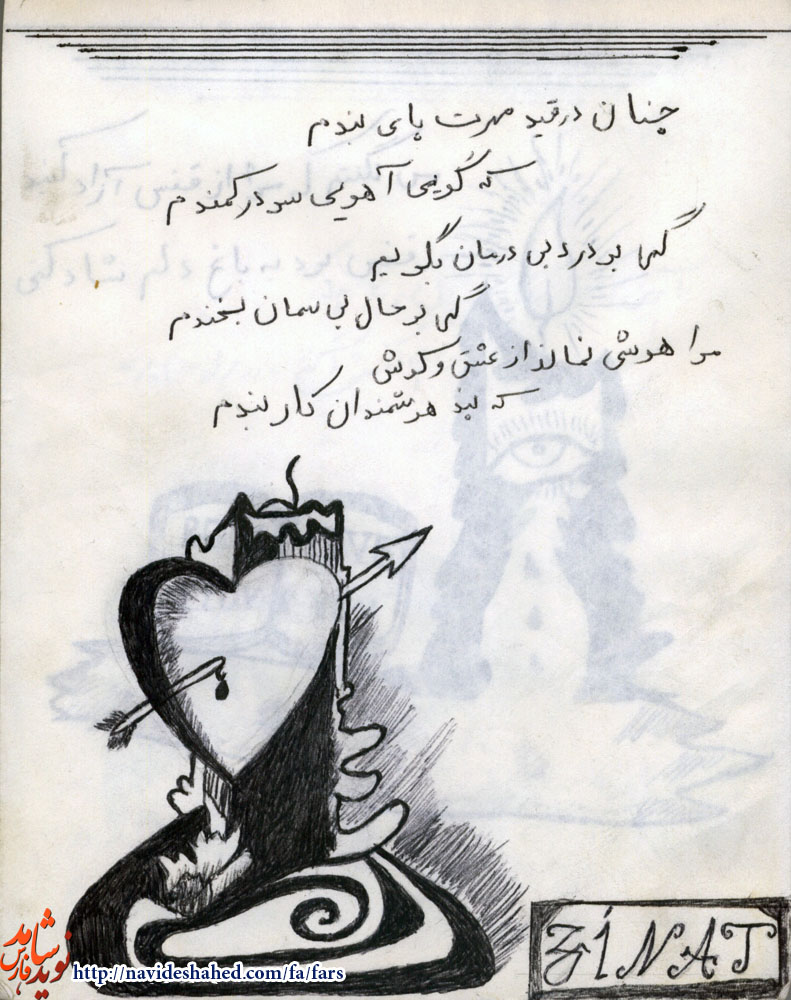 چنان در قید مهرت پای بندم
که گویی آهویی سر در کمندم
گهی بر درد بی درمان بگریم
گهی بر حال بی سمان بخندم
مرا هوشی نماند از عشق و گوش
که پند هوشمندان کار بندم
ZINAT
نوید شاهد فارس
http://navideshahed.com/fa/fars